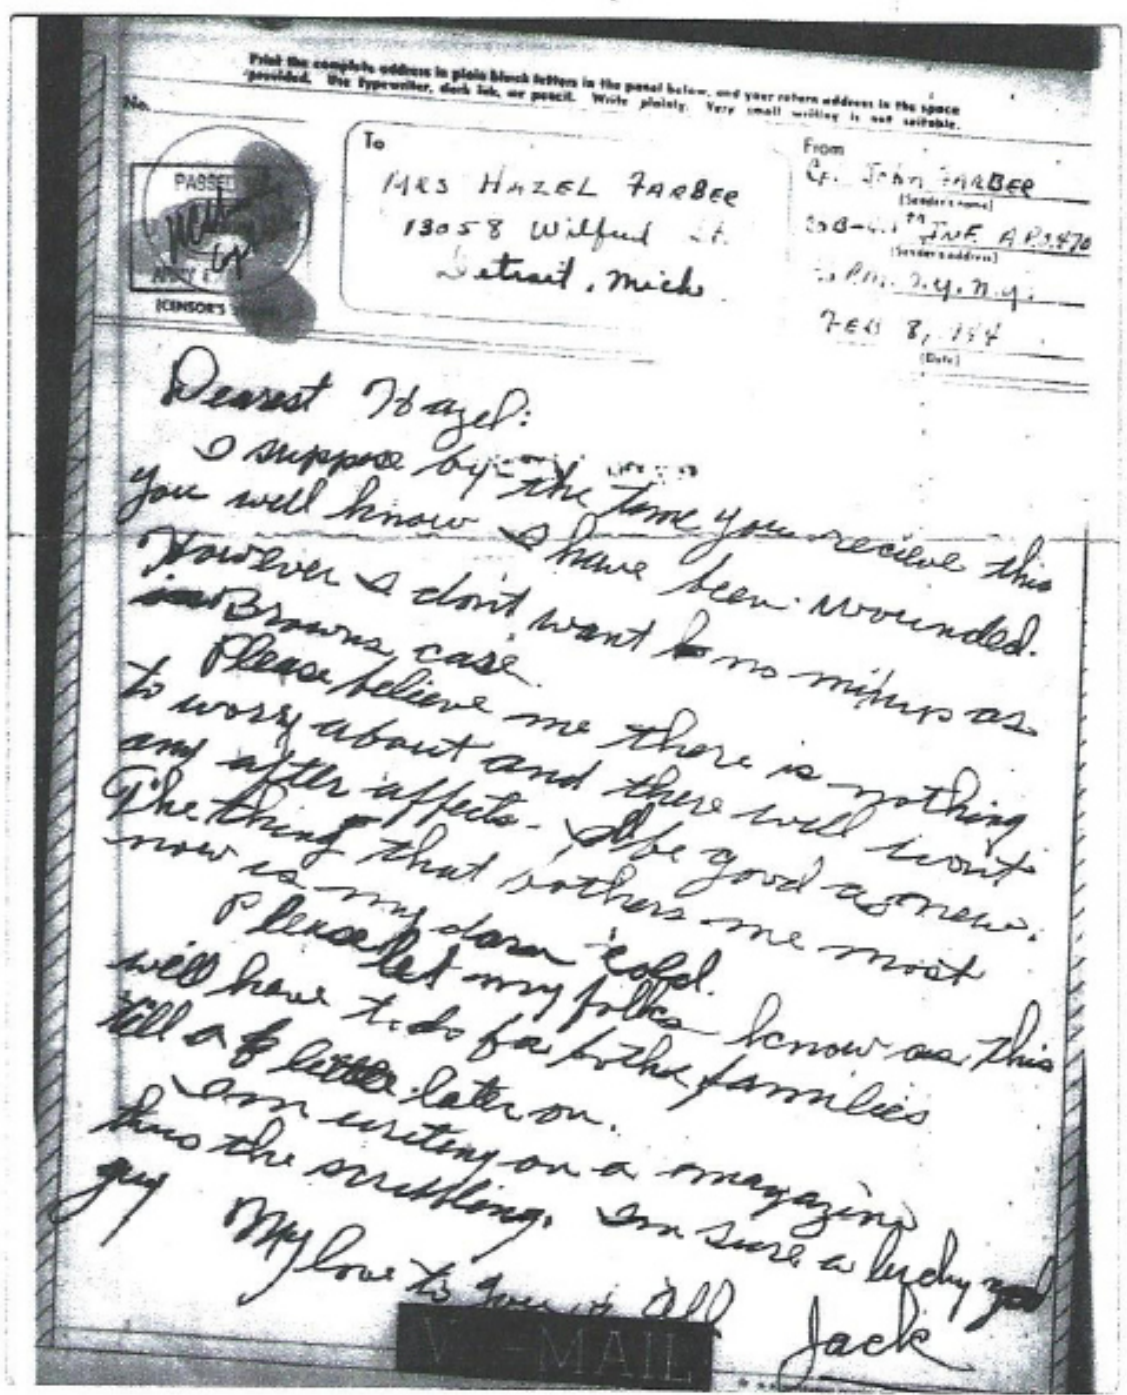 Print the complete address in plain block letters in the panel below, and your return address in the space
provided. Use typewriter, dark ink, or pencil. Write plainly. Very small writing is not suitable.
No.
PASSED
ARMY
(CENSOR'S
To
MRS HAZEL FARBER
13058 Wilfred St.
Detroit, Mich.
From
John FARBER
(Sender's name)
INF. A.P.O. 470
(Sender's address)
P.M. N.Y. N.Y.
FEB 8, 144
(Date)
Dearest Hazel:
I suppose by the time you recieve this
you will know I have been wounded.
However I don't want no mixups as
in Browns case.
Please believe me there is nothing
to worry about and there will won't
any after affects. I'll be good as new.
The thing that bothers me most
now is my darn cold.
Please let my folks know as this
will have to do for both families
till a little later on.
Am writing on a magazine
thus the scribbling. Am sure a lucky
guy
My love to you & all
Jack
V-MAIL